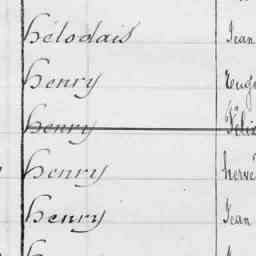 hélodais Jean
henry
henry Félix
henry hervé
henry Jean